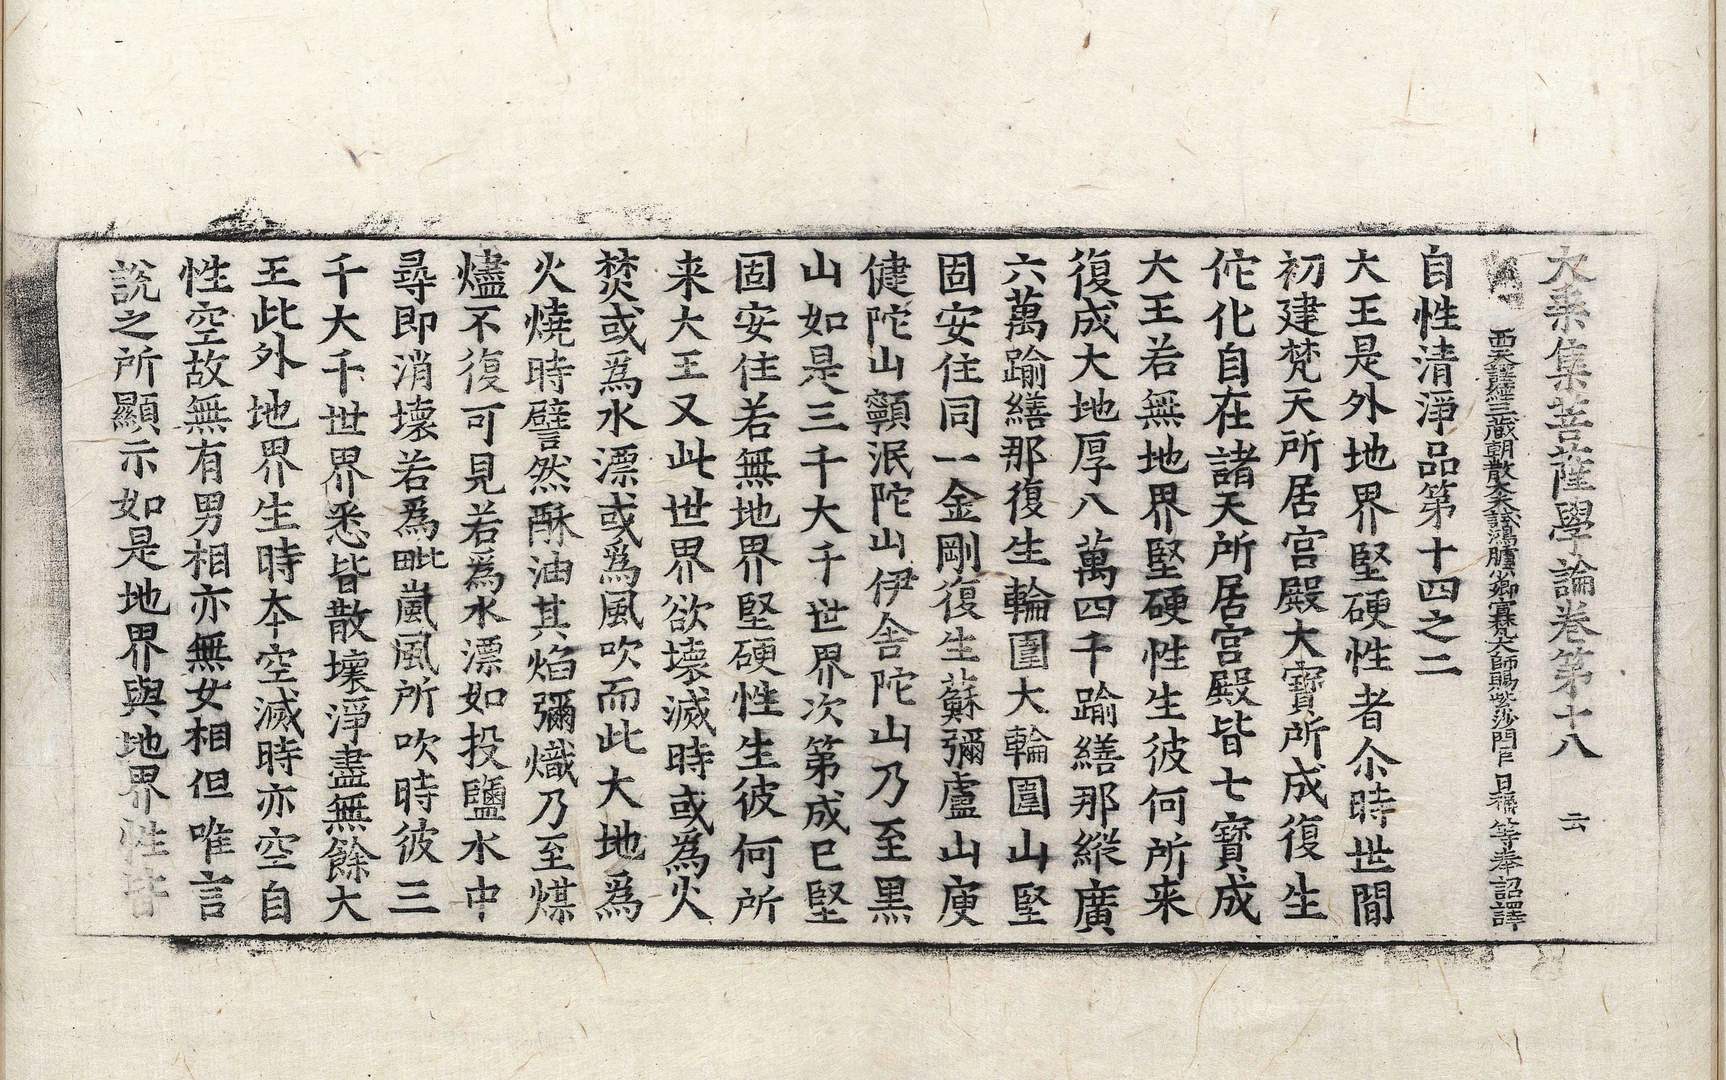 大乗集菩薩學論卷第十八 云
西天譯經三藏朝散大夫試鴻臚少卿宣梵大師賜紫沙門臣日稱等奉詔譯
自性清淨品第十四之二
大王是外地界堅硬性者尒時世間
初建梵天所居宮殿大寶所成復生
佗化自在諸天所居宮殿皆七寶成
大王若無地界堅硬性生彼何所来
復成大地厚八萬四千踰繕那縱廣
六萬踰繕那復生輪圍大輪圍山堅
固安住同一金剛復生蘇彌盧山庾
健陀山顐泯陀山伊舍陀山乃至黒
山如是三千大千世界次第成已堅
固安住若無地界堅硬性生彼何所
来大王又此世界欲壊滅時或爲火
焚或爲水漂或爲風吹而此大地爲
火燒時譬然酥油其焰彌熾乃至煤
燼不復可見若爲水漂如投鹽水中
尋即消壊若爲毗嵐風所吹時彼三
千大千世界悉皆散壊淨盡無餘大
王此外地界生時本空滅時亦空自
性空故無有男相亦無女相但唯言
說之所顯示如是地界與地界性皆